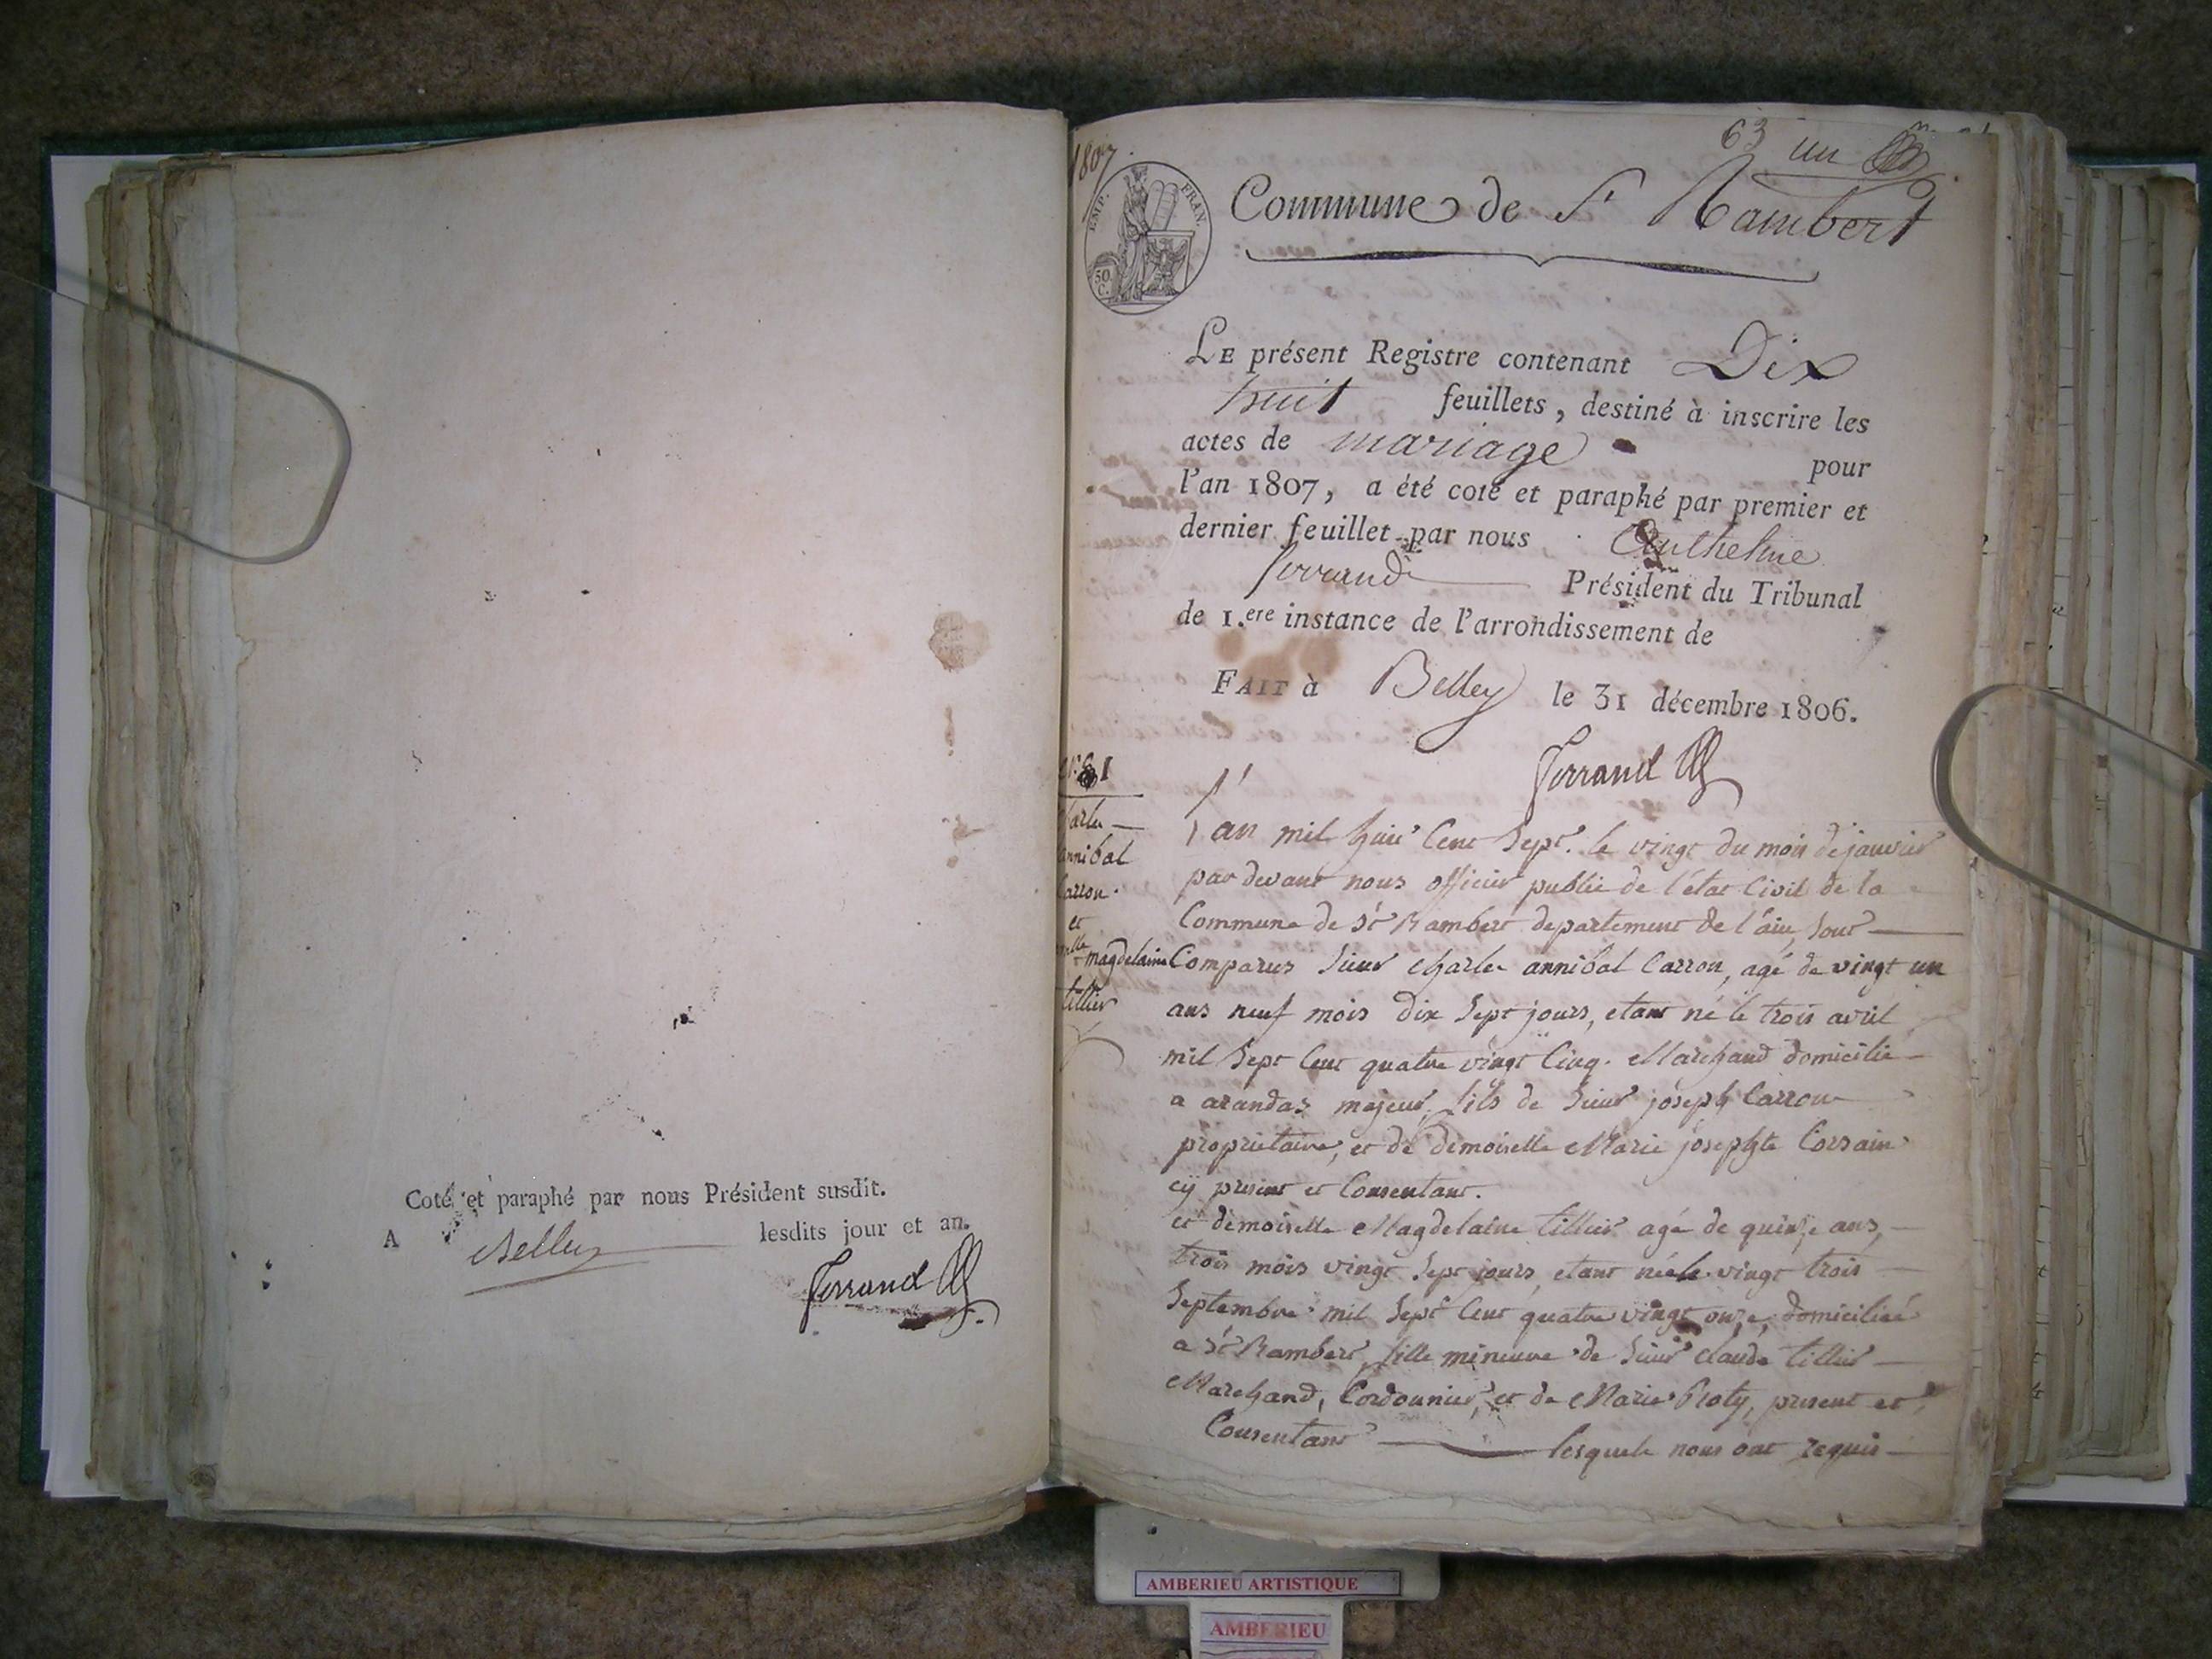 Coté et paraphé par nous Président susdit.
A Belley lesdits jour et an.
Ferrand
1807.
63 un
EMP. FRAN.
50 C.
Commune de St Rambert
LE présent Registre contenant Dix
huit feuillets, destiné à inscrire les
actes de mariage pour
l'an 1807, a été coté et paraphé par premier et
dernier feuillet par nous Anthelme
ferrand Président du Tribunal
de 1.ere instance de l'arrondissement de
FAIT à Belley le 31 décembre 1806.
Ferrand
1
Charles
annibal
Carron
et
magdelaine
tillier
L'an mil huit Cent Sept. le vingt du mois de janvier
par devant nous officier public de l'état Civil de la
Commune de St Rambert departement de l'ain, sont
Comparus Sieur Charles annibal Carron, agé de vingt un
ans neuf mois dix Sept jours, etant né le trois avril
mil Sept Cent quatre vingt Cinq. Marchand domicilié
a arandas majeur, fils de Sieur joseph Carron
proprietaire, et de demoiselle Marie josephte Corsain
cÿ present et Consentant.
et demoiselle Magdelaine tillier agé de quinze ans,
trois mois vingt Sept jours, etant née le vingt trois
Septembre mil Sept Cent quatre vingt onze, domiciliée
a St Rambert, fille mineure de Sieur Claude tillier
Marchand, Cordonnier, et de Marie Proty, present et
Consentant lesquels nous ont requis
AMBERIEU ARTISTIQUE
AMBERIEU